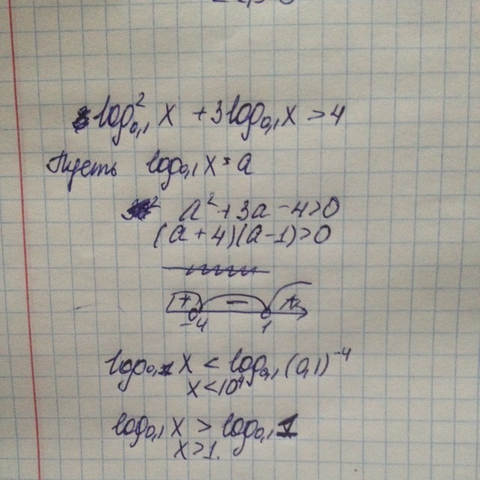 log²₀,₁ x + 3log₀,₁ x > 4
Пусть log₀,₁ x = a
a² + 3a - 4 > 0
(a + 4)(a - 1) > 0
+ - +
-4 1
log₀,₁ x < log₀,₁ (0,1)⁻⁴
x < 10⁴
log₀,₁ x > log₀,₁ 1
x > 1.